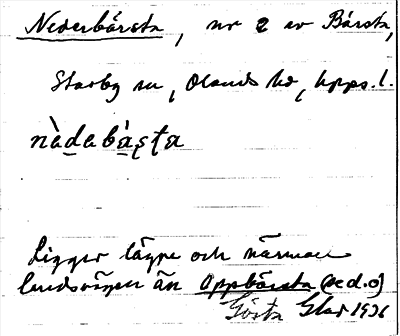 Nederbårsta, nr 2 av Bårsta,
Starby sn, Olands hd, Upps. l.
nàdabàsta
Ligger lägre och närmare
landsvägen än Oppbårsta (se d.o)
Gösta 1926